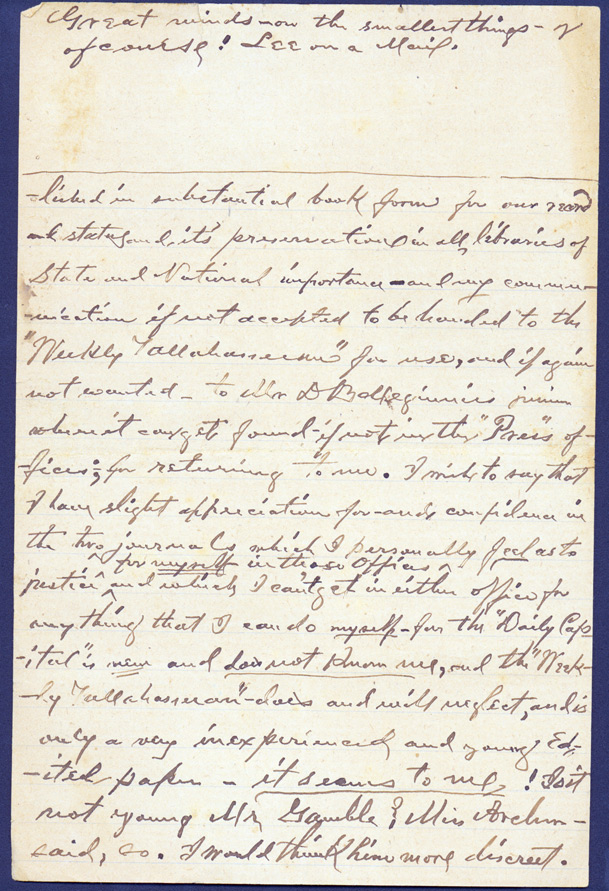 Great minds on the smallest things - &
of course! Lee on a Mail.
-lished in substantial book form for our record
and its preservation in all libraries of
State and National importance - and my commu-
-nication if not accepted to be handed to the
"Weekly Tallahasseean" for use, and if again
not wanted - to Mr D B
where it can get found - if not in the "Press" of-
-fices; for returning to me. I wish to say that
I have slight appreciation for and confidence in
the two journals which I personally feel as to
for myself in those offices
justice and which I can't get in either office for
anything that I can do myself - for the "Daily Cap
-ital" is new and does not know me, and the "Week-
-ly Tallahasseean" - does and will neglect, and is
only a very inexperienced and young Ed-
-ited paper - it seems to me! Is it
not young Mr Gamble? Miss
said, so. I would think him more discreet.